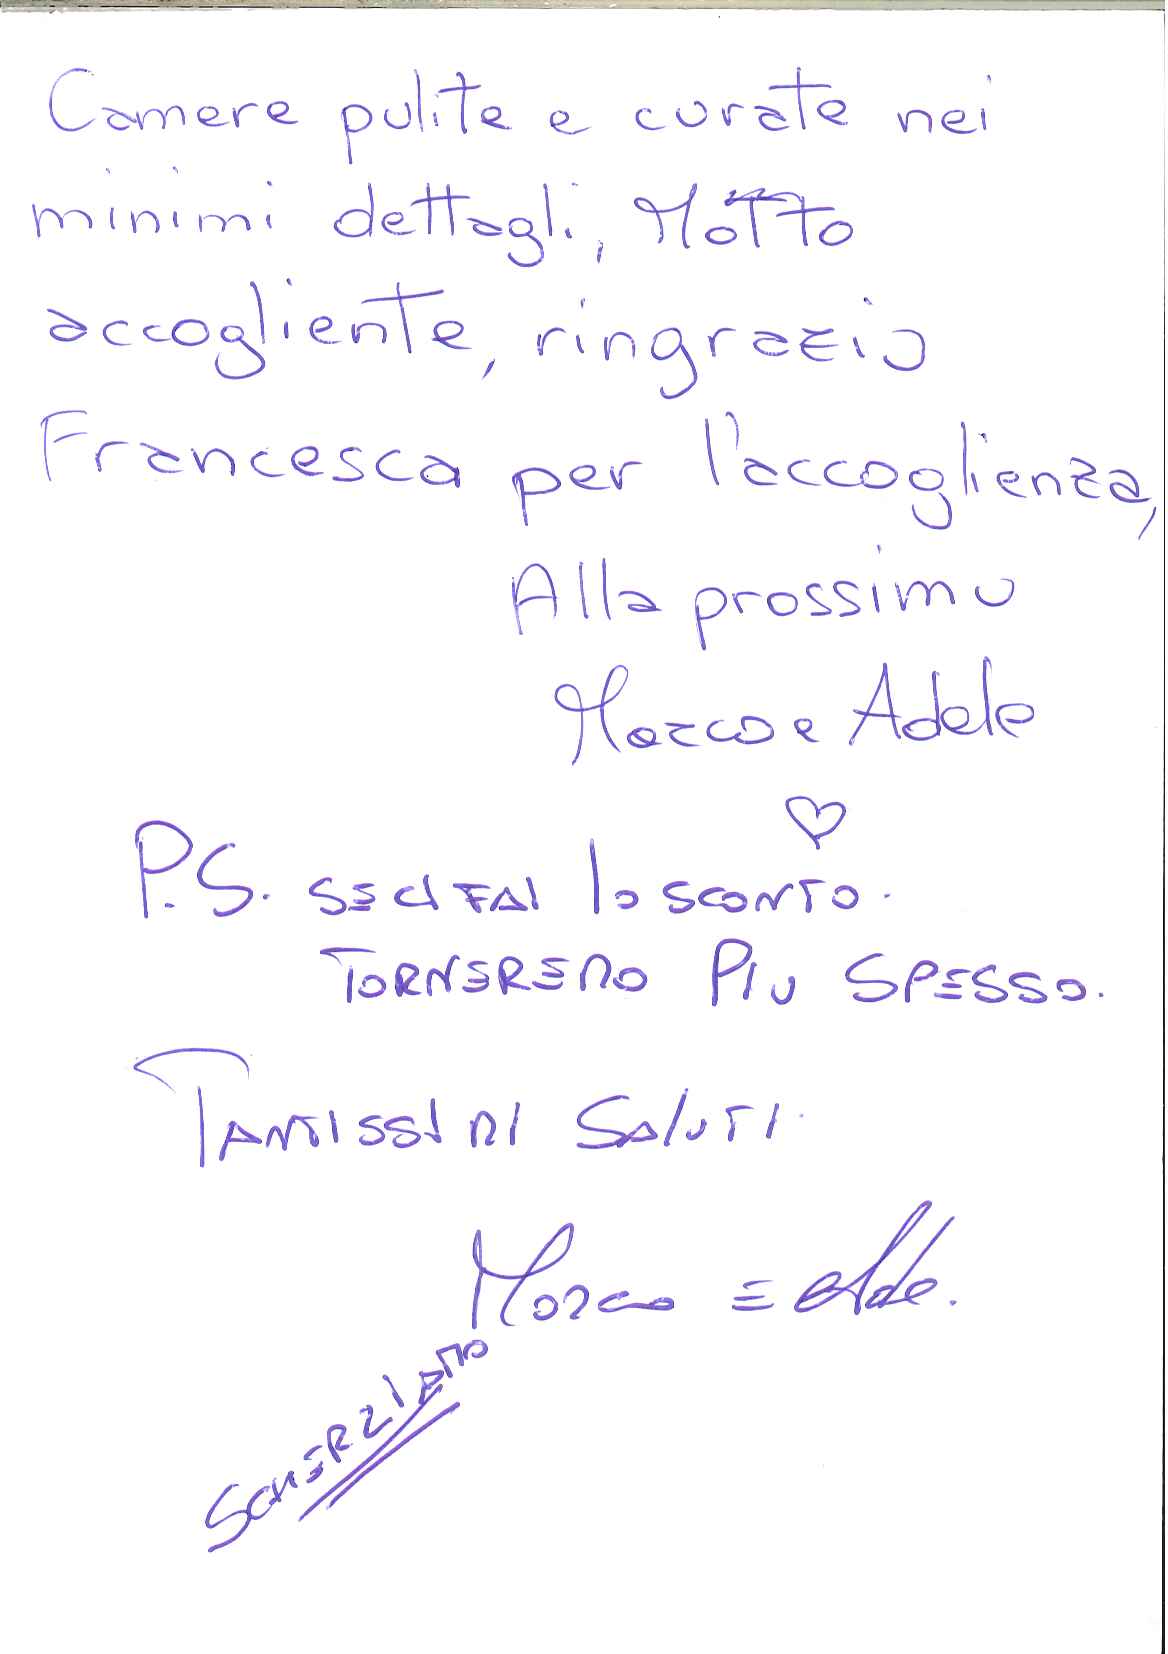 Camere pulite e curate nei
minimi dettagli, Motto
accogliente, ringrazio
Francesca per l'accoglienza,
Alla prossima
Marco e Adele
P.S. SE CI FAI lo SCONTO.
TORNEREMO PIU SPESSO.
TANTISSIMI SALUTI.
Marco E Ade.
SCHERZIAMO